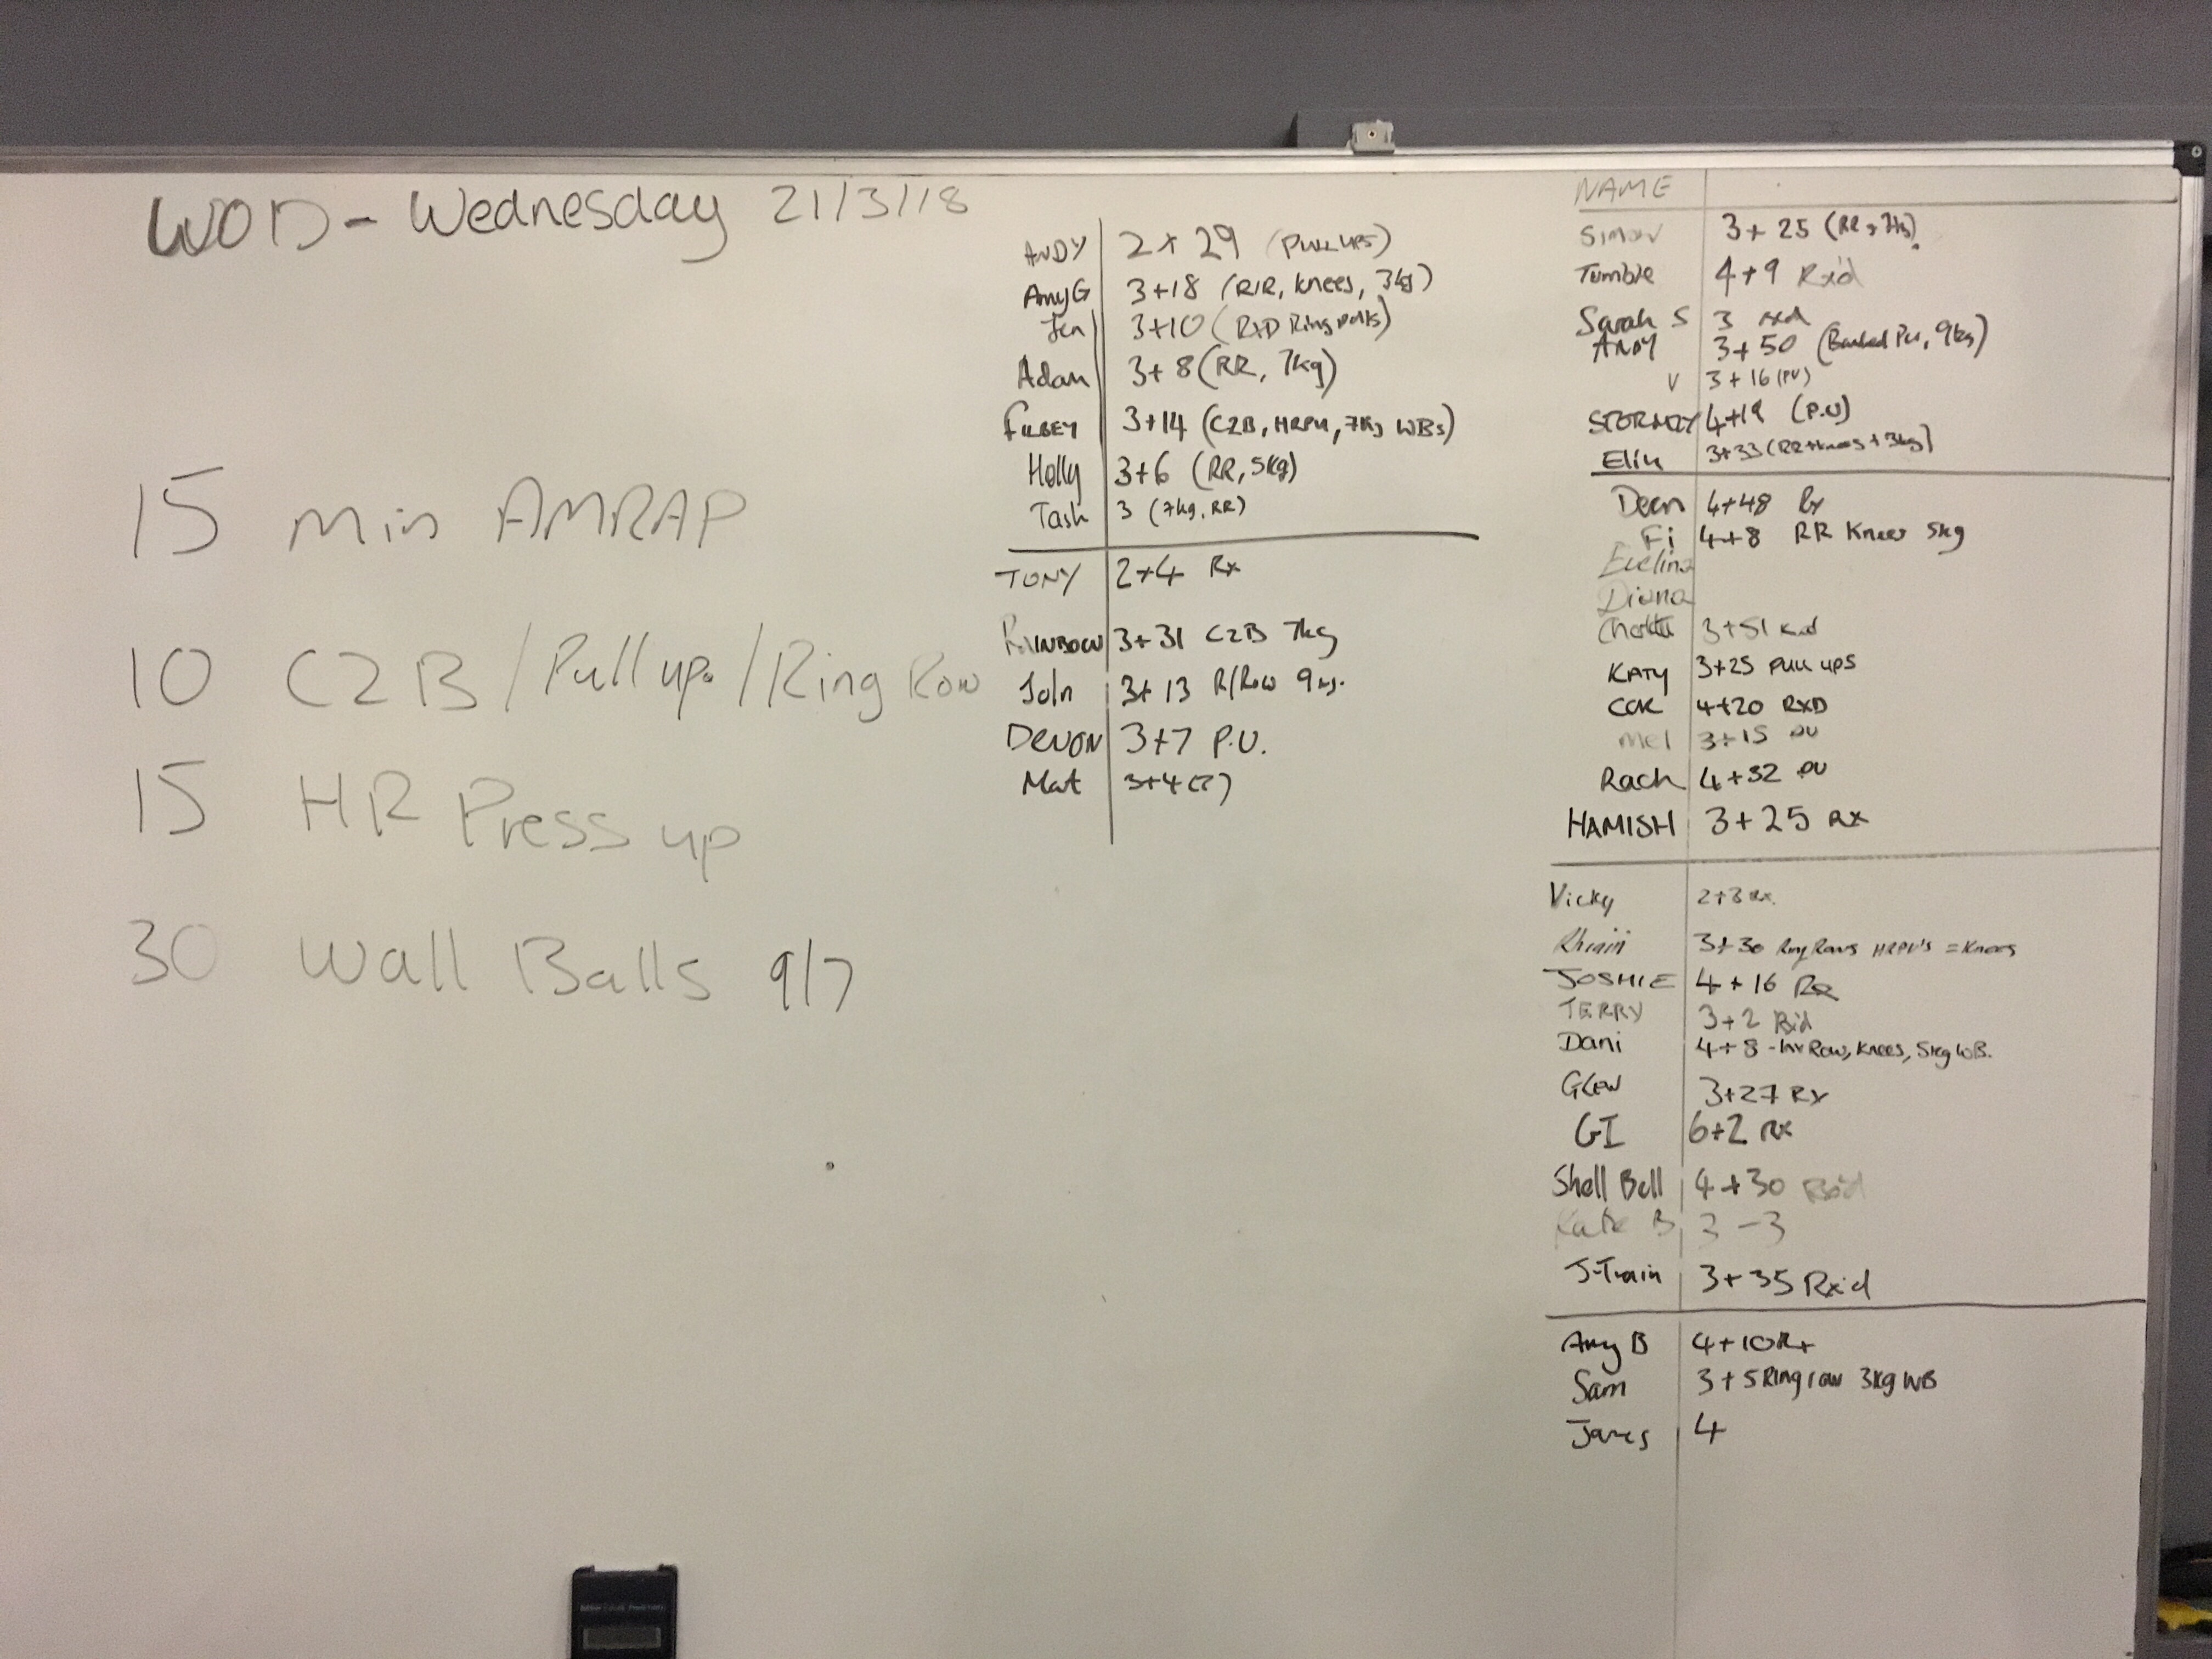 WOD - Wednesday 21/3/18
15 min AMRAP
10 C2B / Pull up / Ring Row
15 HR Press up
30 Wall Balls 9/7
ANDY 2 + 29 (PULL UPS)
Amy G 3+18 (R/R, Knees, 3kg)
Jen 3+10 (RXD Ring
Adam 3+8 (RR, 7kg)
3+14 (C2B, HRPU, 7Kg WBs)
Holly 3+6 (RR, 5kg)
Tash 3 (7kg, RR)
TONY 2+4 Rx
RAINBOW 3+31 C2B 7kg
John 3+13 R/Row 9kg.
DEVON 3+7 P.U.
Mat 3+4 (?)
NAME
Simon 3+25 (RR,
Tumble 4+9 Rx'd
Sarah S 3 rxd
ANDY 3+50 (Banded PU, 9kg)
V 3+16 (PU)
STORMZY 4+19 (P.U)
Elin 3+33 (RR + knees + 3kg)
Dean 4+48 Rx
Fi 4+8 RR Knees 5kg
Evelina
Diana
3+51 rxd
KATY 3+25 PULL UPS
COK 4+20 RXD
Mel 3+15 PU
Rach 4+32 PU
HAMISH 3+25 RX
Vicky 2+3 Rx.
3+30 Ring Rows HRPU's = Knees
JOSHIE 4+16
TERRY 3+2
Dani 4+8 - Inv Row, Knees, 5kg WB.
GLEN 3+27 Rx
GI 6+2 RX
Shell Bell 4+30 Rx'd
Kate B 3 - 3
J-Train 3+35 Rx'd
Amy B 4+10 Rx
Sam 3+5 Ring row 3kg WB
James 4